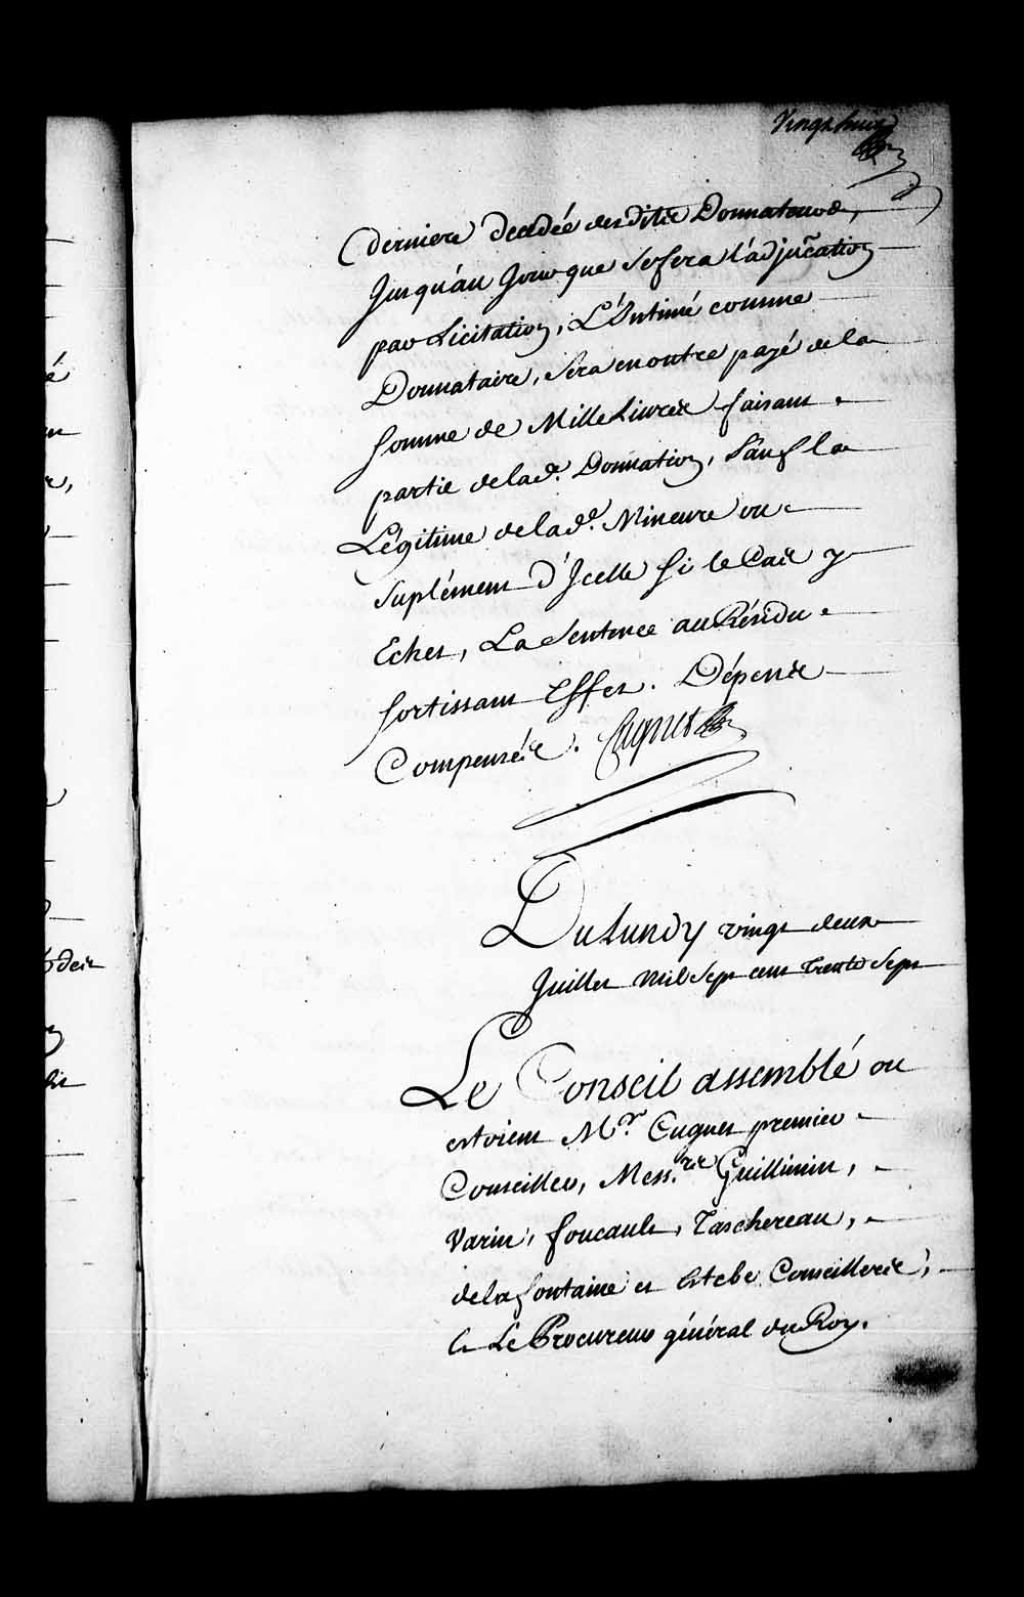 Vingt huit
derniere decedée desdits Donnateurs,
Jusqu'au Jour que se fera l'adjud.cation
par Licitation, L'Intimé comme
Donnataire, sera en outre payé de la
somme de Mille Livres faisant
partie de lad.e Donnation, Sauf la
Légitime de lad.e Mineure ou
suplément d'Jcelle si le Cas y
Echet, La Sentence au Résidu
sortissant Effet. Dépens
Compensés. Cugnet
Du Lundy vingt deux
Juillet mil Sept cent trente Sept
Le Conseil assemblé ou
estoient M.r Cugnet premier
Conseiller, Mess.rs Guillimin,
Varin, foucault, Taschereau,
de lafontaine et Estebe Conseillers,
Et Le Procureur général du Roy.
é